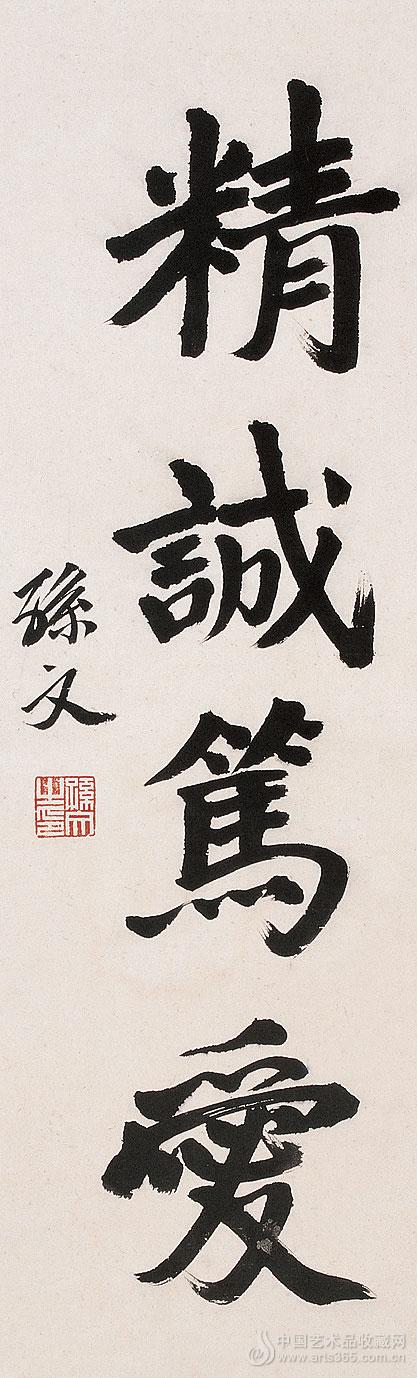 精誠篤愛
孫文
孫文之印
中国艺术品收藏网
www.arts365.com.cn